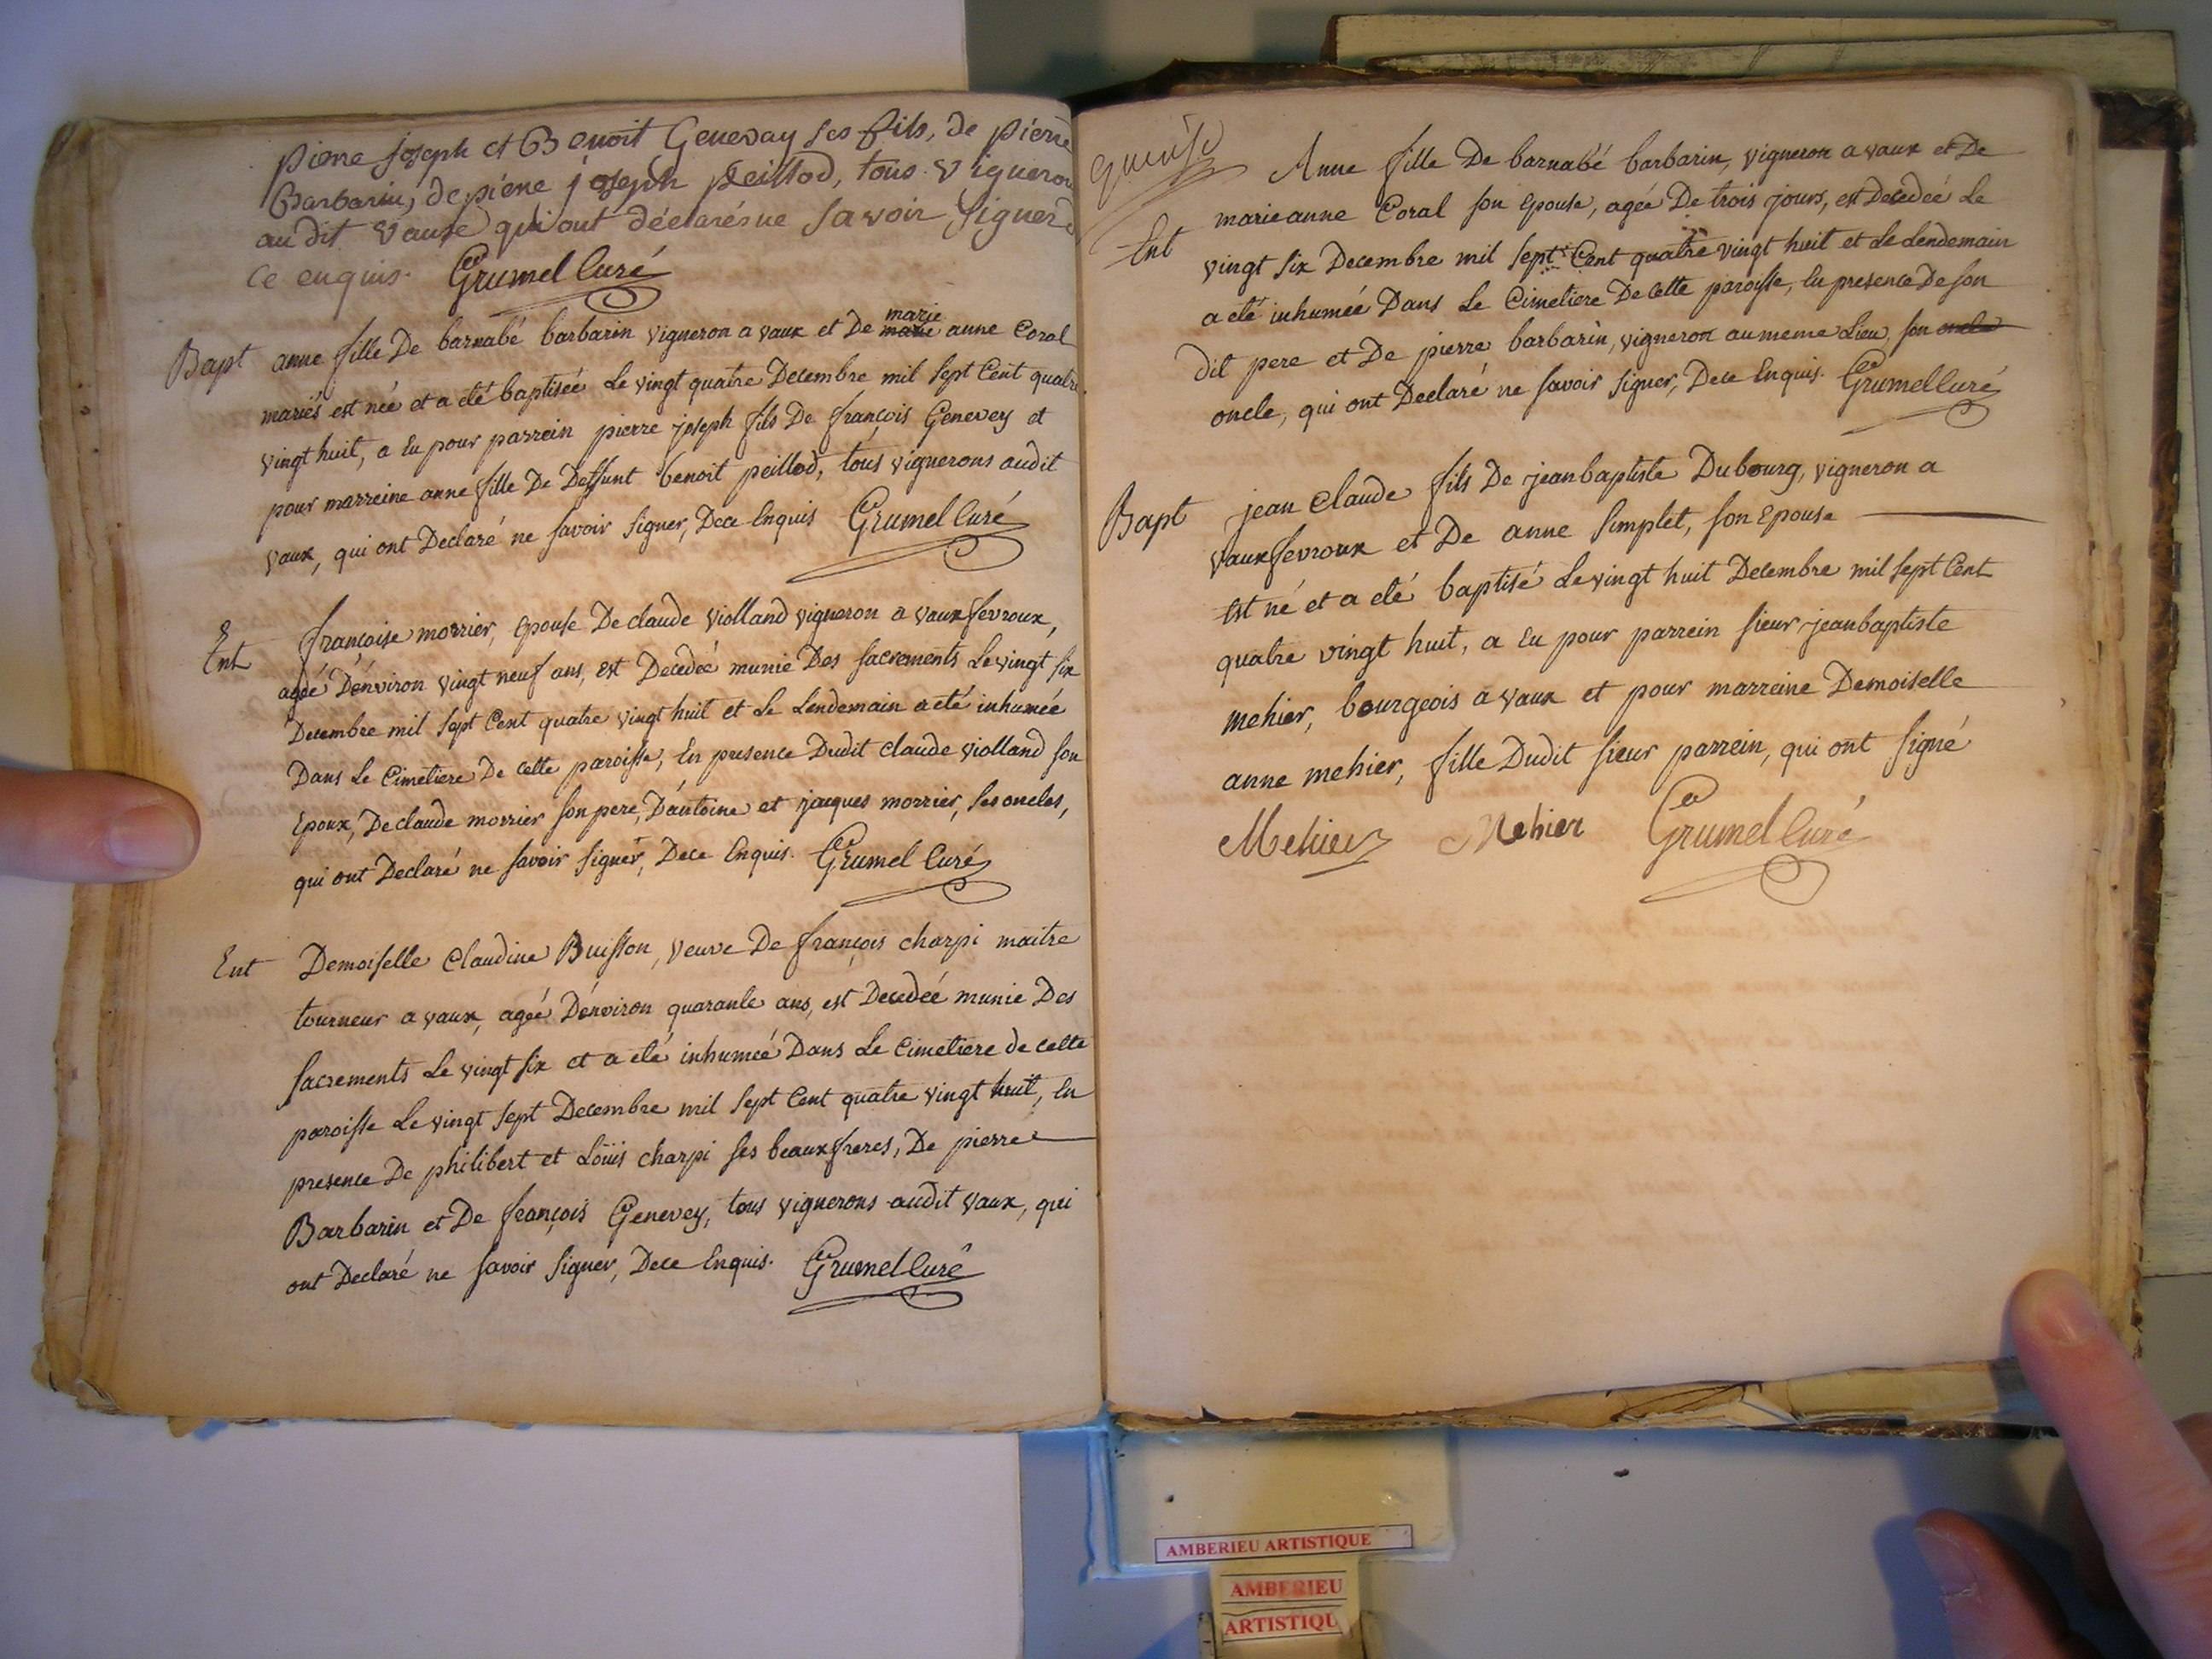 pierre joseph et Benoit Genevay ses fils, de pierre
Barbarin, de piene joseph peillod, tous vigneron
au dit vaux qui ont déclarés ne savoir signer d
ce enquis. Grumel Curé
Bapt anne fille De barnabé barbarin vigneron a vaux et De marie marie anne Coral
mariés est née et a eté baptisée Le vingt quatre Decembre mil sept Cent quatre
vingt huit, a Eu pour parrein pierre joseph fils De françois Genevey et
pour marreine anne fille De Deffunt benoit peillod, tous vignerons audit
vaux, qui ont Declaré ne savoir signer, Dece Enquis Grumel Curé
Ent françoise morrier, epouse De claude violland vigneron a vaux fevroux,
ageé D'énviron vingt neuf ans, est Decedeé munie Des sacrements Le vingt six
Decembre mil sept Cent quatre vingt huit et Le Lendemain a eté inhumée
Dans Le Cimetiere De cette paroisse, En presence Dudit claude violland son
Epoux, De claude morrier son pere, D'antoine et jacques morrier, ses oncles,
qui ont Declaré ne savoir signer, Dece Enquis. Grumel Curé
Ent Demoiselle Claudine Buisson, veuve De françois charpi maitre
tourneur a vaux, ageé D'énviron quarante ans, est Decedeé munie Des
sacrements Le vingt six et a eté inhumeé Dans Le Cimetiere de cette
paroisse Le vingt sept Decembre mil sept Cent quatre vingt huit, En
presence De philibert et Loüis charpi ses beaux freres, De pierre
Barbarin et De françois Genevey, tous vignerons audit vaux, qui
ont Declaré ne savoir signer, Dece Enquis. Grumel Curé
Anne fille De barnabé barbarin, vigneron a vaux et De
Ent marie anne Coral son Epouse, agée De trois jours, est Decedeé Le
vingt six Decembre mil sept Cent quatre vingt huit et Le Lendemain
a eté inhumée Dans Le Cimetiere De cette paroisse, En presence De son
dit pere et De pierre barbarin, vigneron au meme Lieu, son oncle
oncle, qui ont Declaré ne savoir signer, Dece Enquis. Grumel Curé
Bapt jean claude fils De jean baptiste Dubourg, vigneron a
vaux fevroux et De anne simplet, son Epouse
Est né et a eté baptisé Le vingt huit Decembre mil sept Cent
quatre vingt huit, a Eu pour parrein sieur jean baptiste
mehier, bourgeois a vaux et pour marreine Demoiselle
anne mehier, fille Dudit sieur parrein, qui ont signé
Mehier Mehier Grumel Curé
AMBERIEU ARTISTIQUE
AMBERIEU
ARTISTIQU